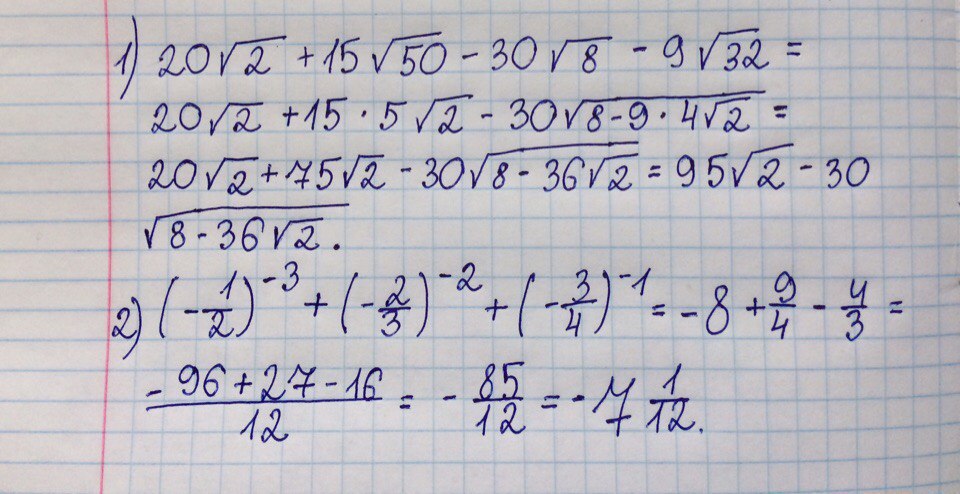 1) 20√2 + 15√50 - 30√8 - 9√32 =
20√2 + 15 · 5√2 - 30√(8-9 · 4√2) =
20√2 + 75√2 - 30√(8 - 36√2) = 95√2 - 30
√(8 - 36√2).
2) (-1/2)^-3 + (-2/3)^-2 + (-3/4)^-1 = -8 + 9/4 - 4/3 =
(-96 + 27 - 16)/12 = -85/12 = -7 1/12.